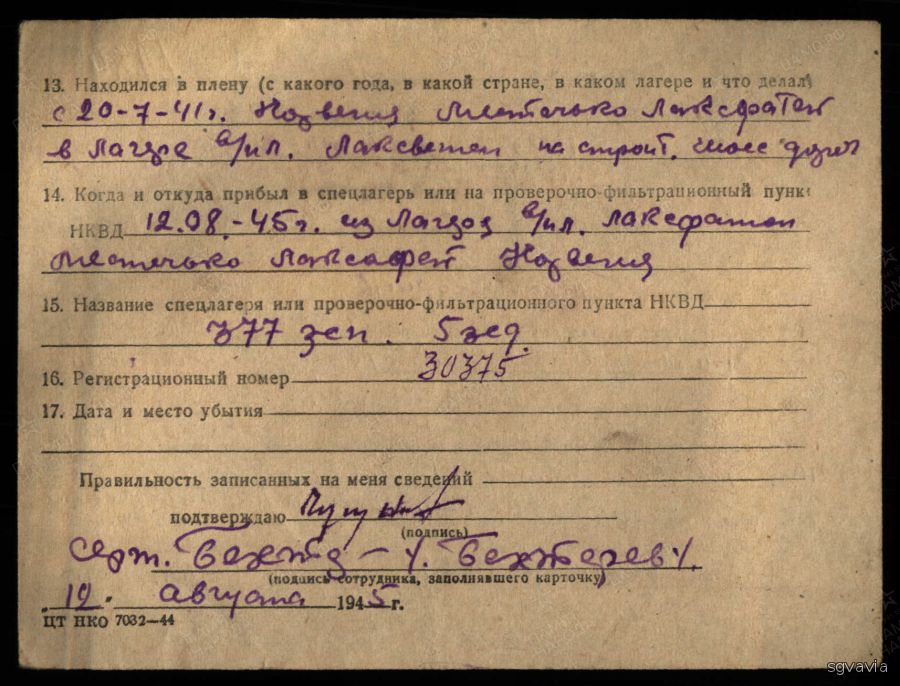 13. Находился в плену (с какого года, в какой стране, в каком лагере и что делал)
с 20-7-41г. Норвегия местечько Лаксфатен
в лагере в/пл. Лаксватен на строит. шоссе дорог
14. Когда и откуда прибыл в спецлагерь или на проверочно-фильтрационный пунк
НКВД 12.08.-45г. из лагеря в/пл. Лаксфатен
местечько Лаксафен Норвегия
15. Название спецлагеря или проверочно-фильтрационного пункта НКВД
377 зсп. 5 зсд.
16. Регистрационный номер 30375
17. Дата и место убытия
Правильность записанных на меня сведений
подтверждаю
(подпись)
серж. Бехтер /Бехтерев/.
(подпись сотрудника, заполнившего карточку)
„12" августа 1945 г.
ЦТ НКО 7032—44
sgvavia